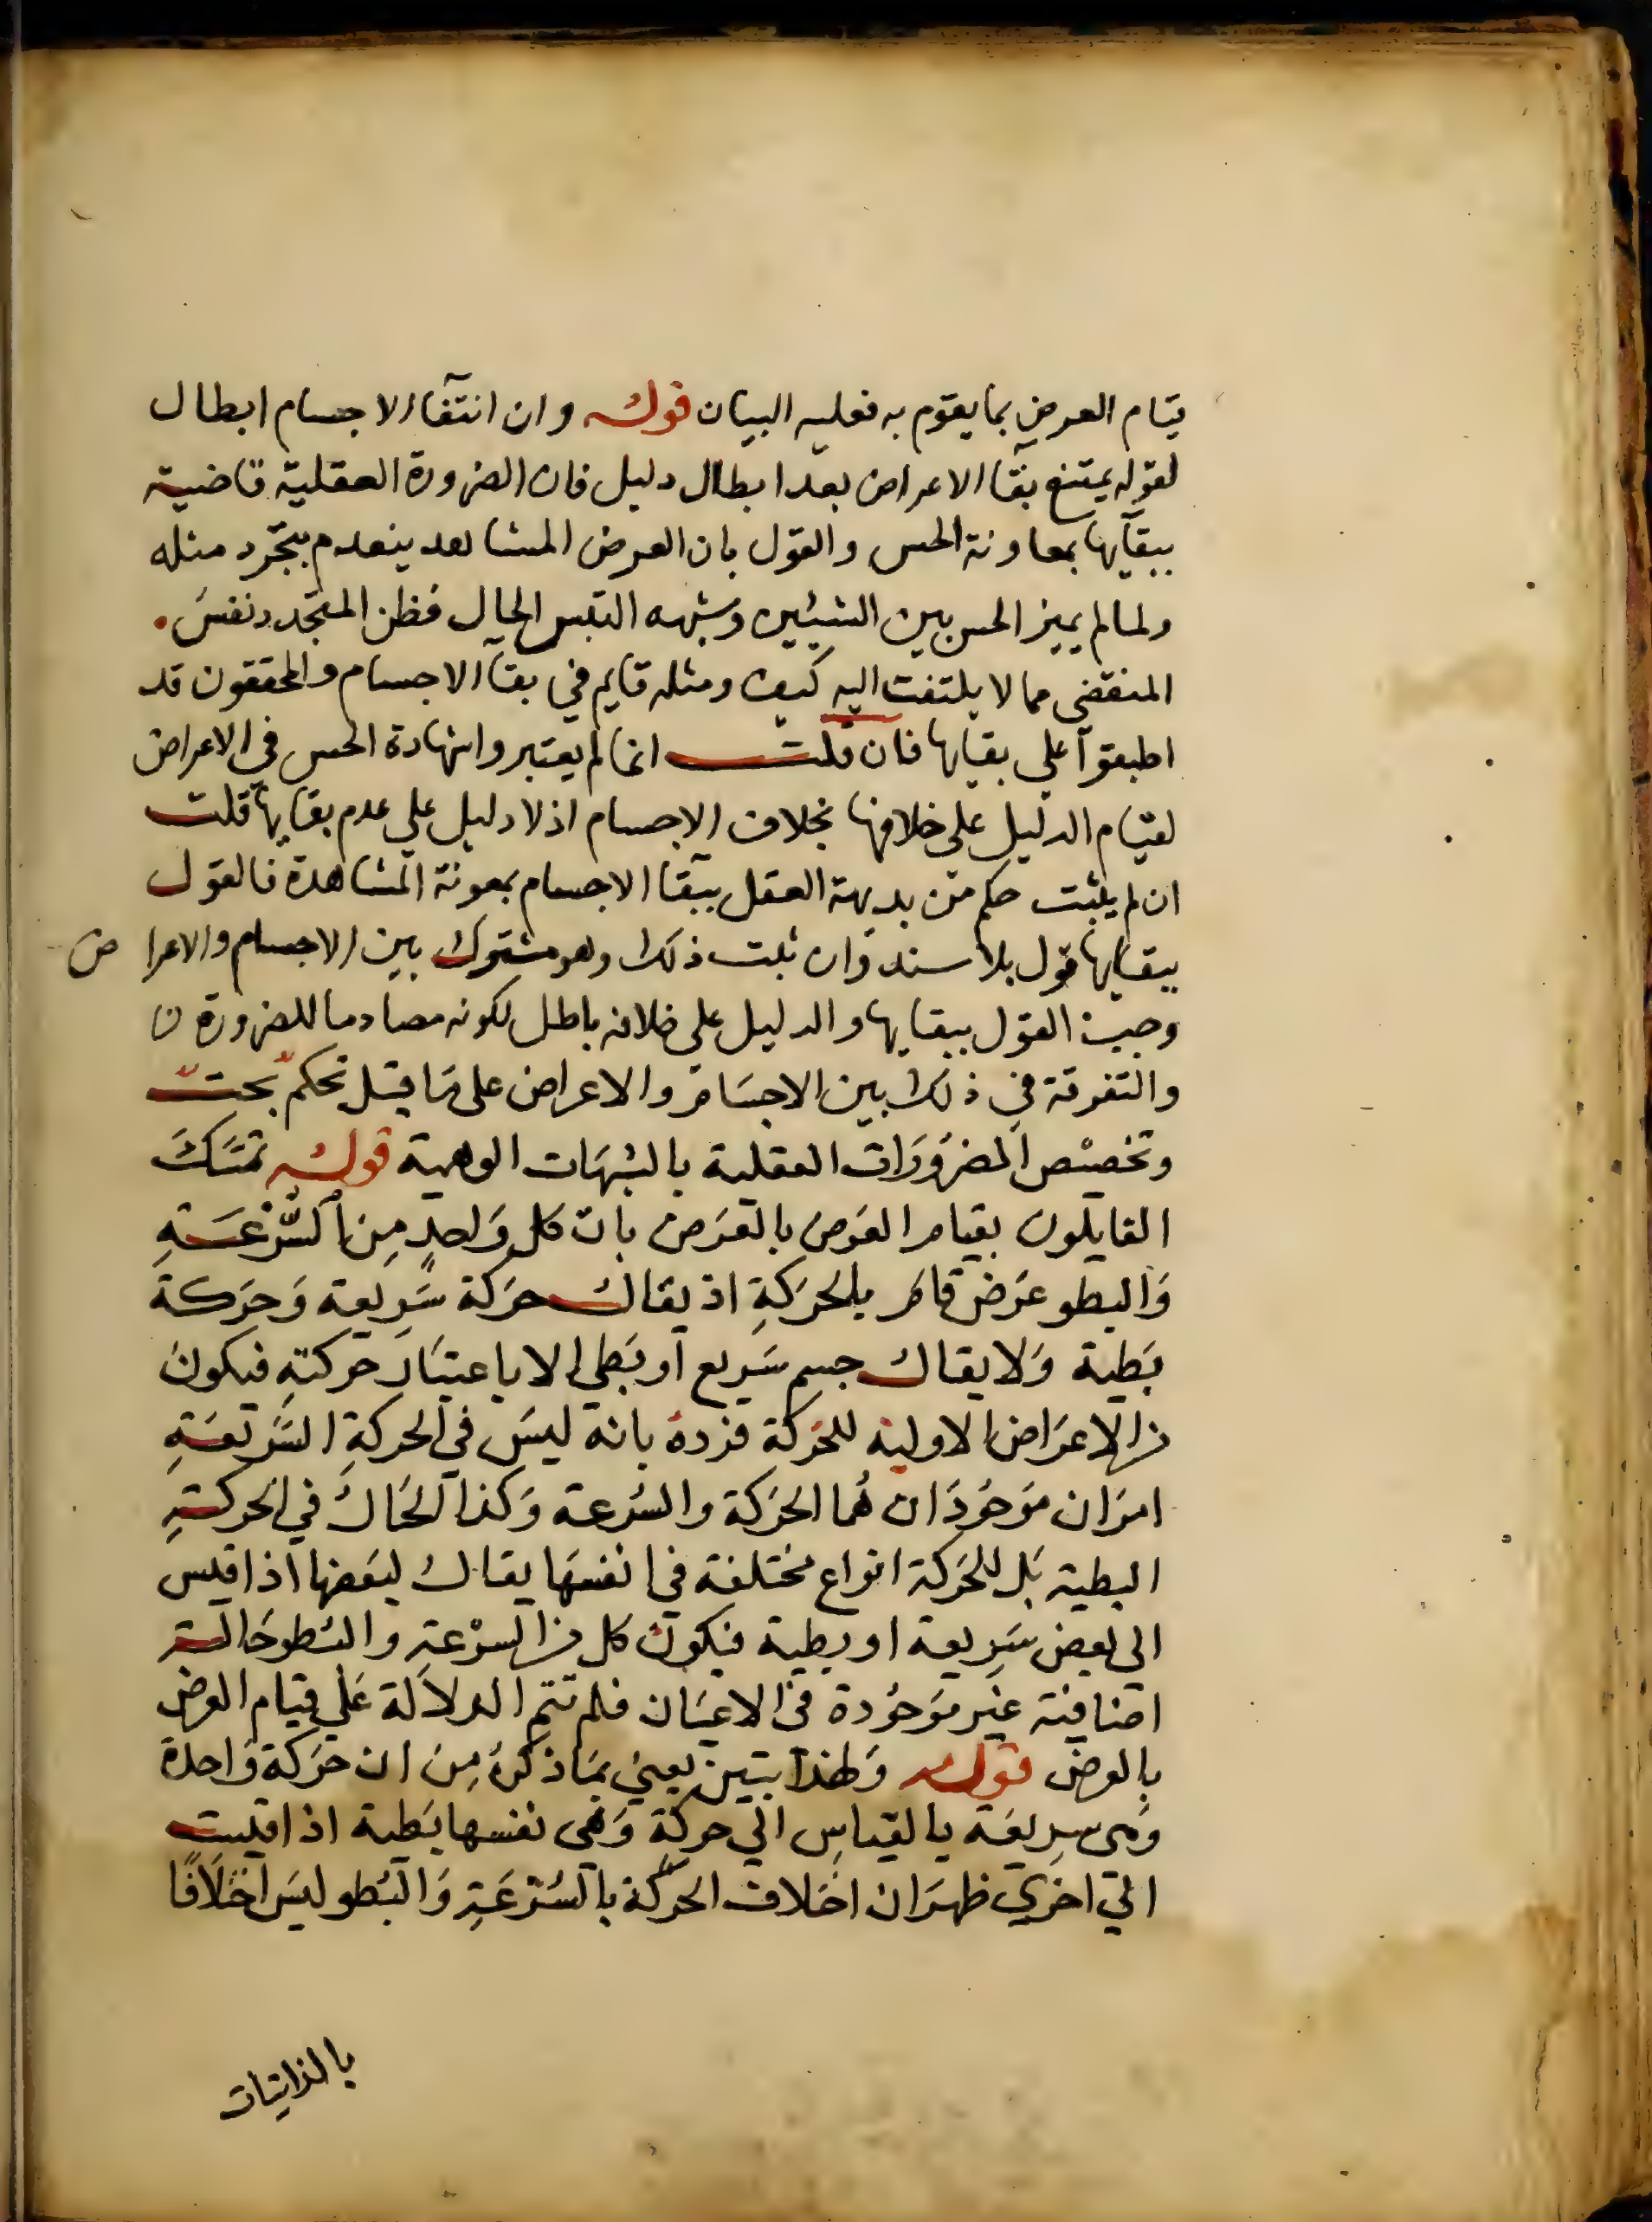 قيام العرض بما يقوم به فعليه البيان قوله وان انتفاء الاجسام ابطال
لقوله يمتنع بقآ الاعراض بعد ابطال دليل فان الضرورة العقلية قاضية
ببقآيها بمعاونة الحس والقول بان العرض المشاهد ينعدم بتجرد مثله
ولما لم يميز الحس بين الشيئين وشبهه التبس الحال فظن المتجدد نفس
المنقضي مما لا يلتفت اليه كيف ومثله قايم في بقآ الاجسام والمحققون قد
اطبقوا على بقايها فان قلت انما لم يعتبروا شهادة الحس في الاعراض
لقيام الدليل على خلافها بخلاف الاجسام اذ لا دليل على عدم بقايها قلت
ان لم يثبت حكم من بديهة العقل ببقآ الاجسام بمعونة المشاهدة فالقول
ببقايها قول بلا سند وان ثبت ذلك وهو مشترك بين الاجسام والاعراض
وجب القول ببقايها والدليل على خلافه باطل لكونه مصادما للضرورة
والتفرقة في ذلك بين الاجسام والاعراض على ما قيل تحكم بحت
وتخصيص الضرورات العقلية بالشبهات الوهمية قوله تمسك
القايلون بقيام العرض بالعرض بان كل واحد من السرعة
والبطو عرض قائم بالحركة اذ يقال حركة سريعة وحركة
بطية ولا يقال جسم سريع او بطي الا باعتبار حركته فيكون
من الاعراض الاولية للحركة فرده بانه ليس في الحركة السريعة
امران موجودان هما الحركة والسرعة وكذا الحال في الحركة
البطية بل للحركة انواع مختلفة في انفسها يقال لبعضها اذا قيس
الى بعض سريعة او بطية فيكون كل من السرعة والبطو حالة
اضافية غير موجودة في الاعيان فلم تتم الدلالة على قيام العرض
بالعرض قوله ولهذا تبين يعني بما ذكره من ان حركة واحدة
وهي سريعة بالقياس الى حركة وهي نفسها بطية اذا قيست
الى اخرى ظهر ان اختلاف الحركة بالسرعة والبطو ليس اختلافا
بالذاتيات